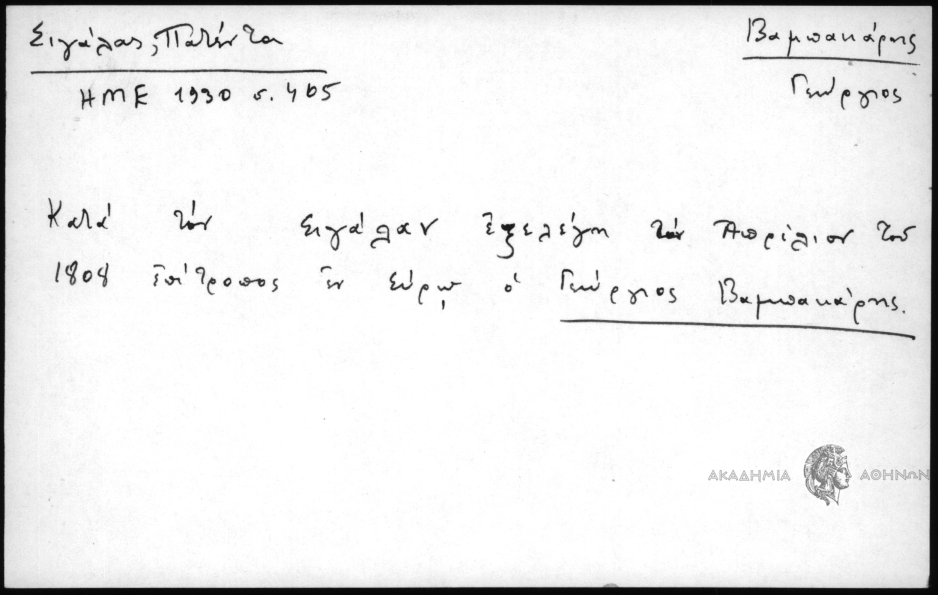 Σιγάλας, Πατέντα
ΗΜΕ 1930 σ. 405
Βαμβακάρης
Γεώργιος
Κατά τον Σιγάλαν ἐξελέγη τον Ἀπρίλιον του
1808 ἐπίτροπος ἐν Σύρῳ ὁ Γεώργιος Βαμβακάρης.
ΑΚΑΔΗΜΙΑ ΑΘΗΝΩΝ